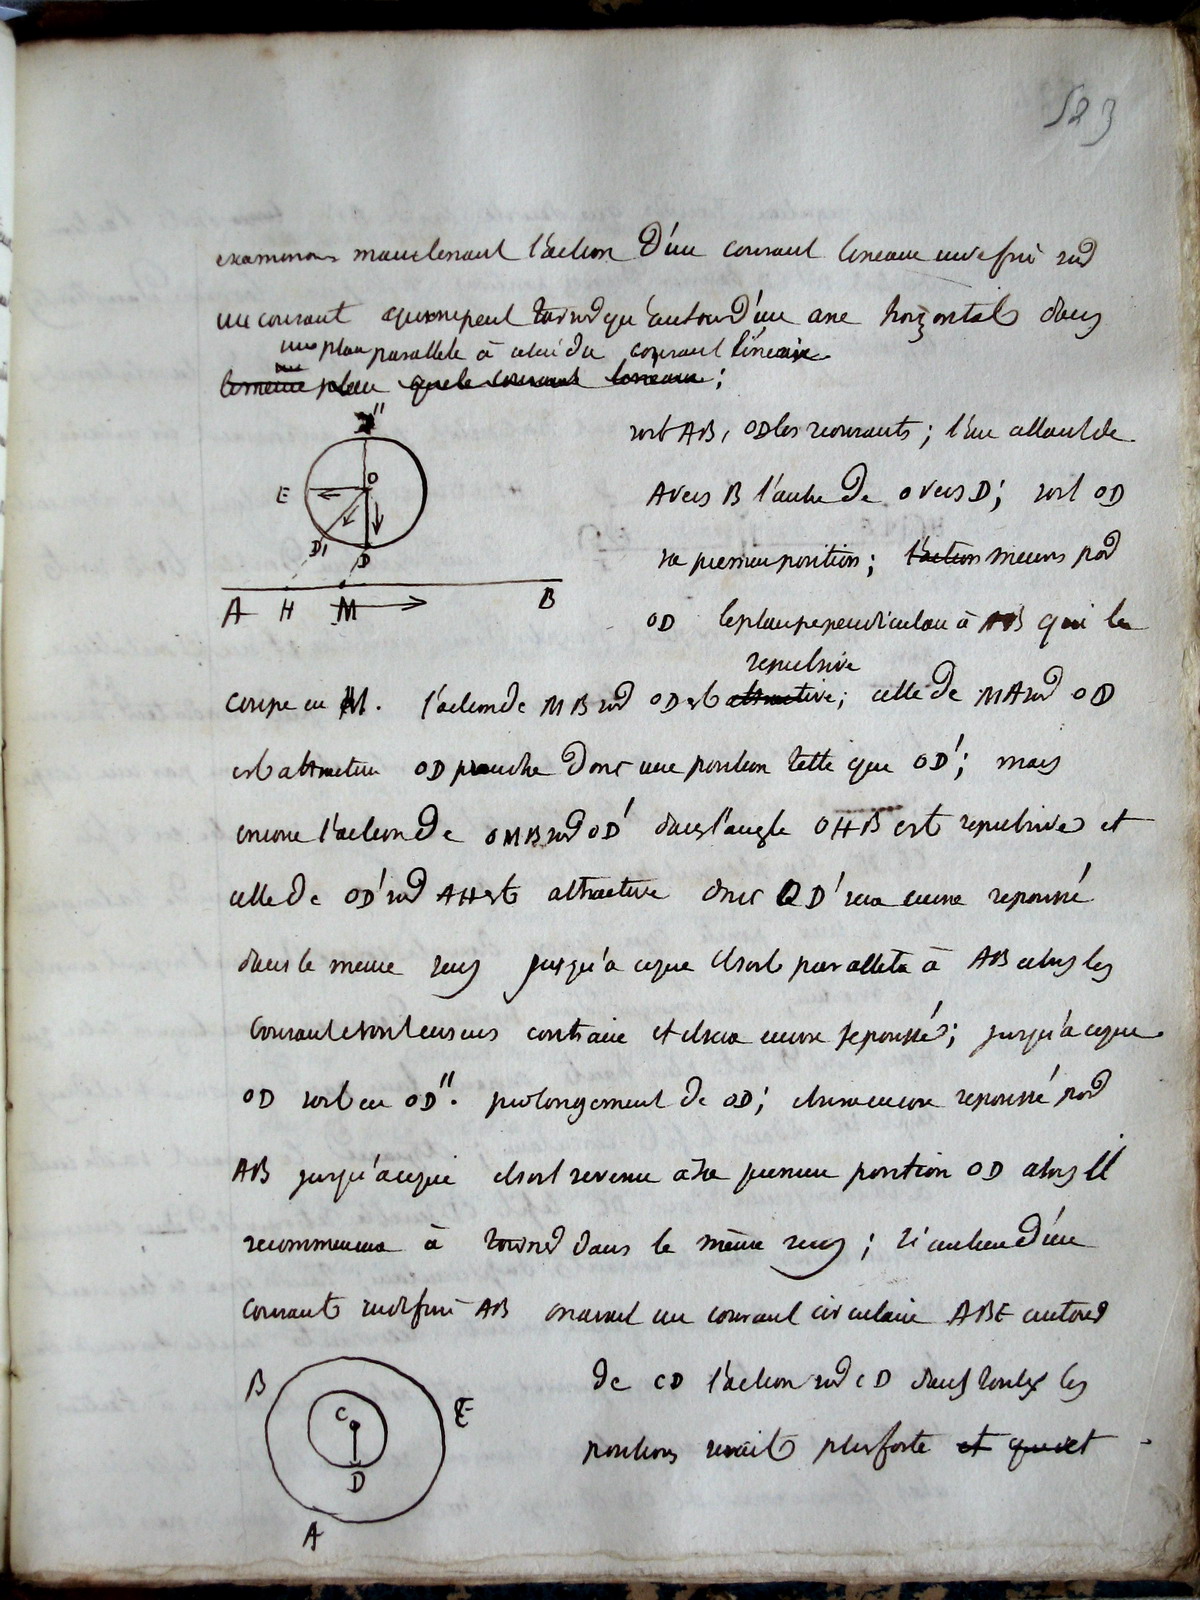 523
examinons maintenant l'action d'un courant lineaire indefini sur
un courant qui ne peut tourner qu'autour d'un axe horizontal dans
un plan parallele à celui du courant linéaire
le meme plan que le courant lineaire ;
soit AB, OD les 2 courants ; l'un allant de
A vers B l'autre de O vers D ; soit OD
sa premiere position ; l'action menons par
OD le plan perpendiculaire à AB qui le
repulsive
coupe en M. l'action de MB sur OD est attractive ; celle de MA sur OD
est attractive OD prendra donc une position telle que OD' ; mais
encore l'action de OMB sur OD' dans l'angle OHB est repulsive et
celle de OD' sur AH est attractive donc OD' sera encore repoussé
dans le meme sens jusqu'à ce que il soit parallele à AB alors les
courants sont en sens contraire et il sera encore repoussé ; jusqu'à ce que
OD soit en OD''. prolongement de OD ; il sera encore repoussé par
AB jusqu'à ce que il soit revenu à sa premiere position OD alors il
recommencera à tourner dans le même sens ; si au lieu d'un
courant indefini AB on avait un courant circulaire ABE autour
de CD l'action sur CD dans toutes les
positions serait plus forte et que et
D''
E
O
D'
D
A H M B
B
C
E
D
A